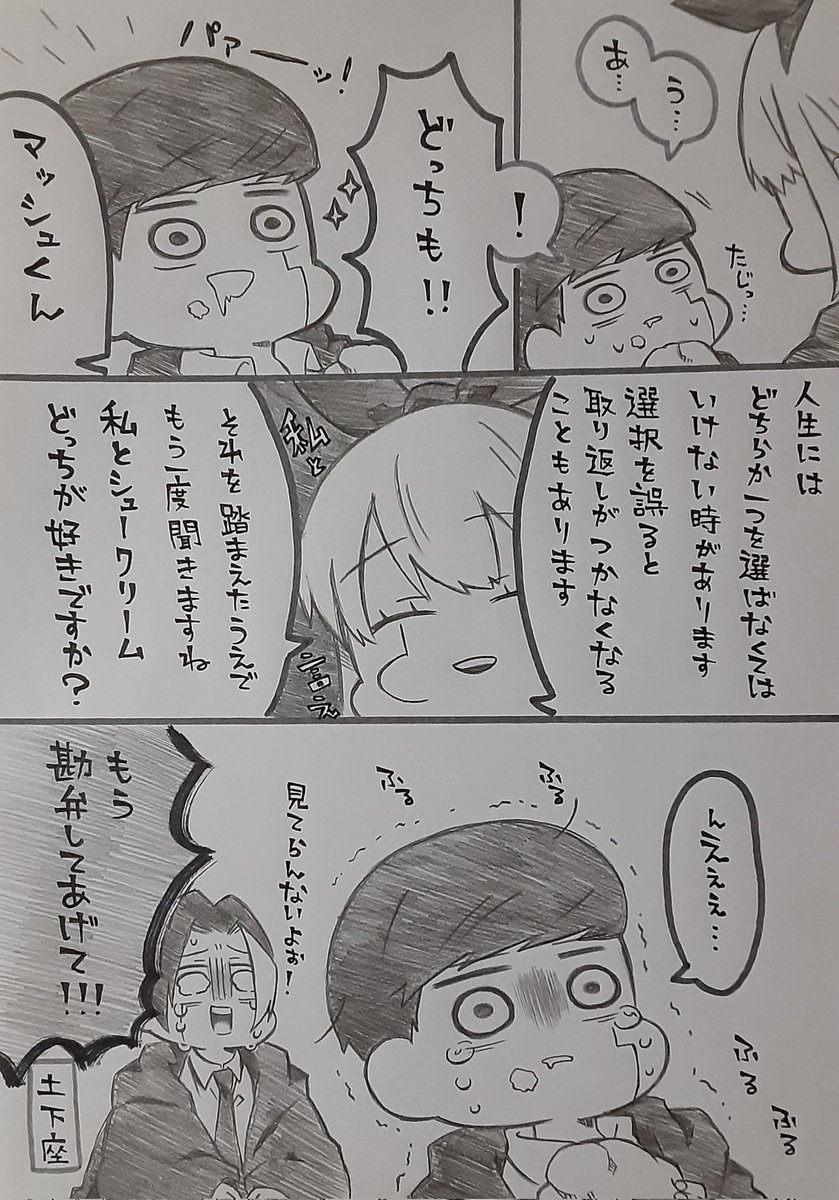 う…
あ…
たじっ…
！
どっちも!!
パァーーッ!
マッシュくん
人生には
どちらか一つを選ばなくては
いけない時があります
選択を誤ると
取り返しがつかなくなる
こともあります
私と
それを踏まえたうえで
もう一度聞きますね
私とシュークリーム
どっちが好きですか？
んえええ…
ふる
ふる
見てらんないよぉ!
もう
勘弁してあげて!!!
土下座
ふる
ふる